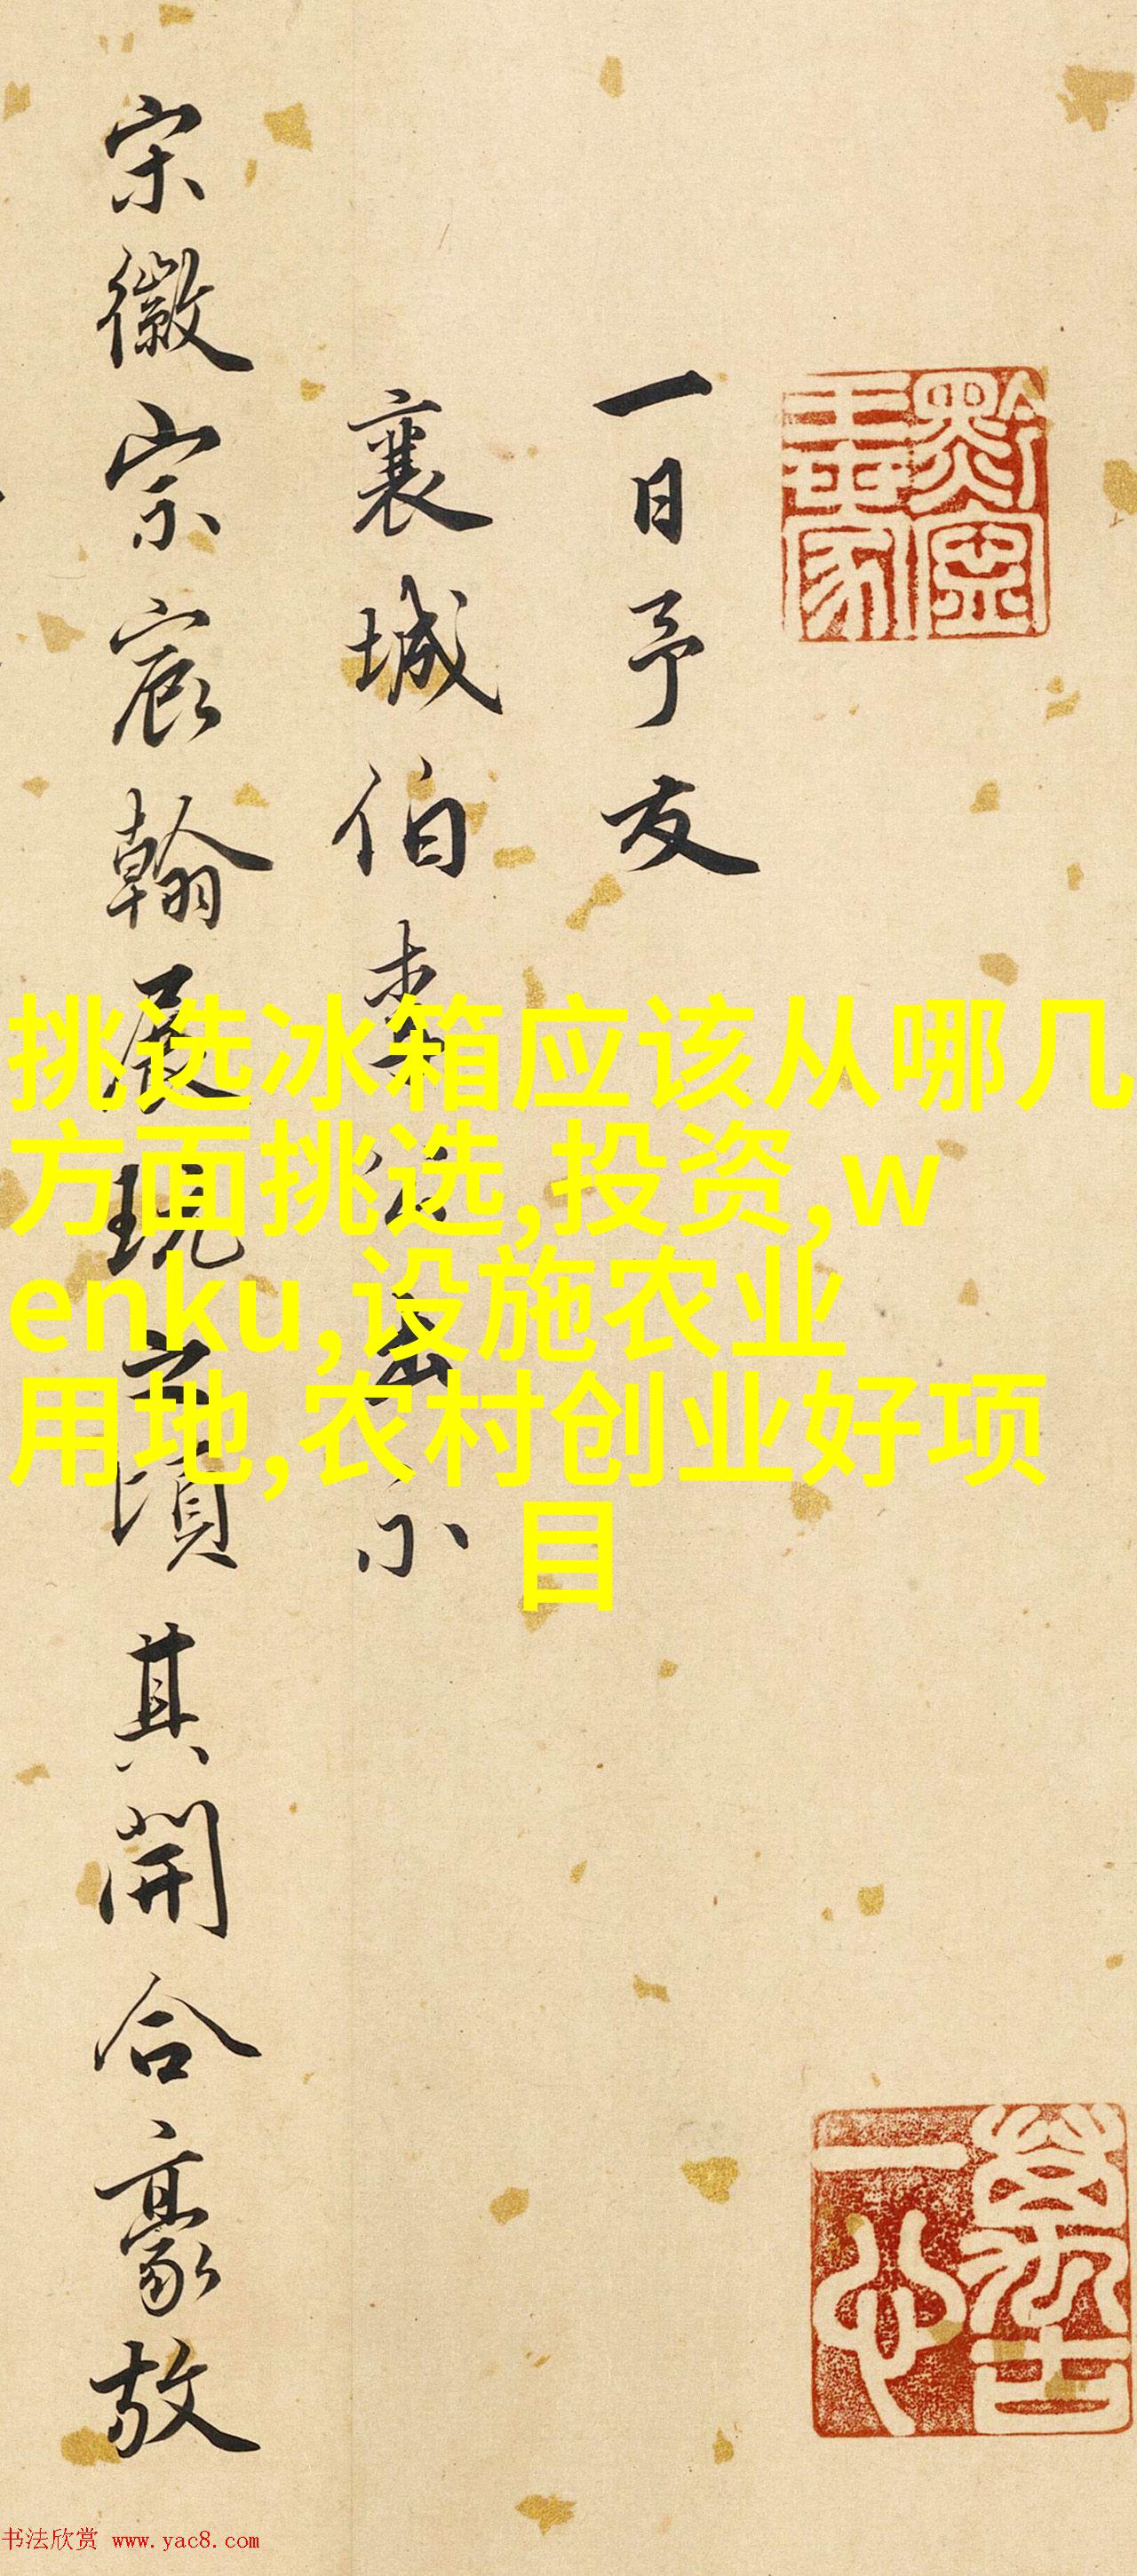 一日予友
襄城伯李公出小
宋徽宗宸翰展之頃其開合豪放
挑选冰箱应该从哪几
方面挑选,投资,w
enku,设施农业
用地,农村创业好项
目
书法欣赏 www.yac8.com